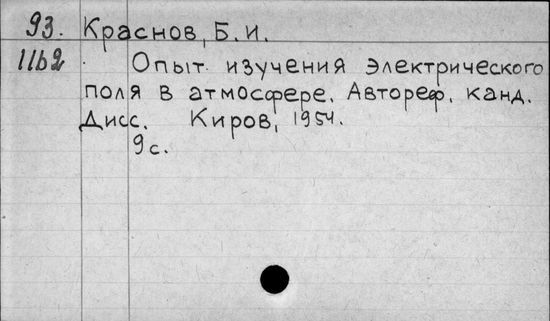 93. Краснов, Б.И.
11б2 Опыт изучения электрического
поля в атмосфере. Автореф. канд.
Дисс. Киров, 1954.
9с.